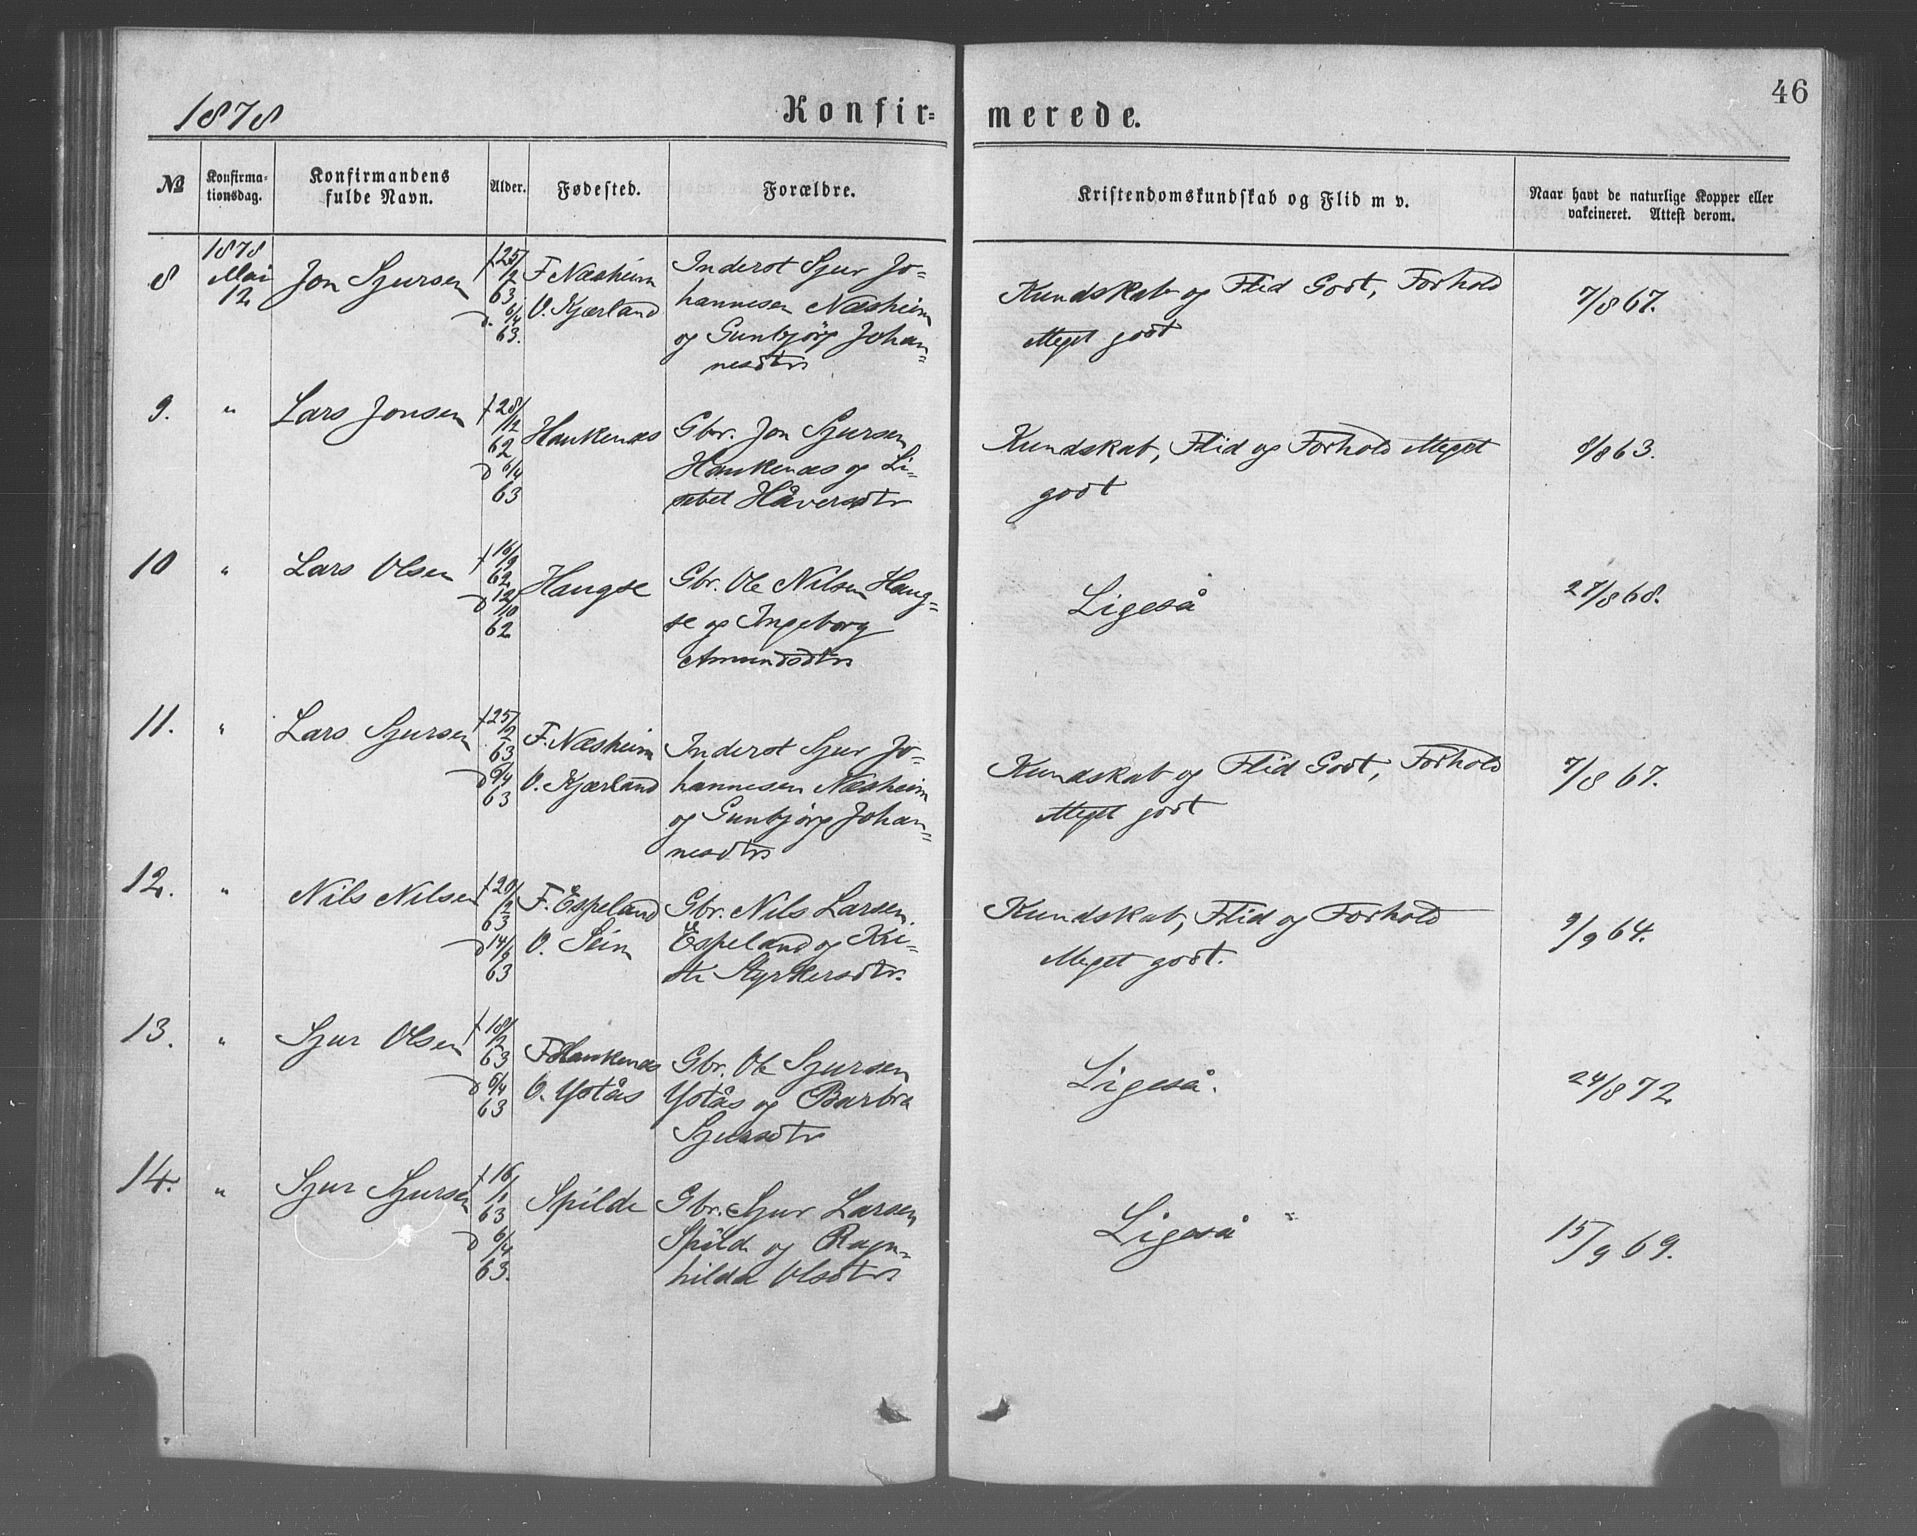 46
1878 Konfirmerede.
№ Konfirmationsdag. Konfirmandens fulde Navn. Alder. Fødested. Forældre. Kristendomskundskab og Flid m v. Naar havt de naturlige Kopper eller vakcineret. Attest derom.
8 1878 Mai 12 Jon Sjursen f 25/2 63 d. 6/4 63. F. Næsheim O. Kjærland
Inderst Sjur Jo-
hannesen Næsheim
og Gunbjörg Johan-
nesdtr
Kundskab og Flid Godt, Forhold
Meget godt
7/8 67.
9. " Lars Jonsen f 28/12 62 d 6/4 63 Hankenæs
Gbr. Jon Sjursen
Hankenæs og Li-
sebet Håversdtr
Kundskab, Flid og Forhold Meget
godt
8/8 63.
10 " Lars Olsen f 16/9 62 d 12/10 62 Haugse
Gbr. Ole Nilsen Haug-
se og Ingeborg
Amundsdtr
Ligeså
27/8 68.
11. " Lars Sjursen f 25/2 63 d 6/4 63 F. Næsheim O. Kjærland
Inderst Sjur Jo-
hannesen Næsheim
og Gunbjörg Johan-
nesdtr
Kundskab og Flid Godt, Forhold
Meget godt
7/8 67.
12. " Nils Nilsen f 20/2 63 d 14/5 63 F. Espeland O. Seim
Gbr. Nils Larsen
Espeland og Kri-
sti Styrkersdtr.
Kundskab, Flid og Forhold
Meget godt.
9/9 64.
13. " Sjur Olsen f 18/2 63 d 6/4 63 F Hankenæs O. Ystås
Gbr. Ole Sjursen
Ystås og Barbra
Sjursdtr
Ligeså.
24/8 72
14. " Sjur Sjursen f 16/1 63 d 6/4 63. Spilde
Gbr. Sjur Larsen
Spilde og Ragn-
hilda Olsdtr.
Ligeså
15/9 69.